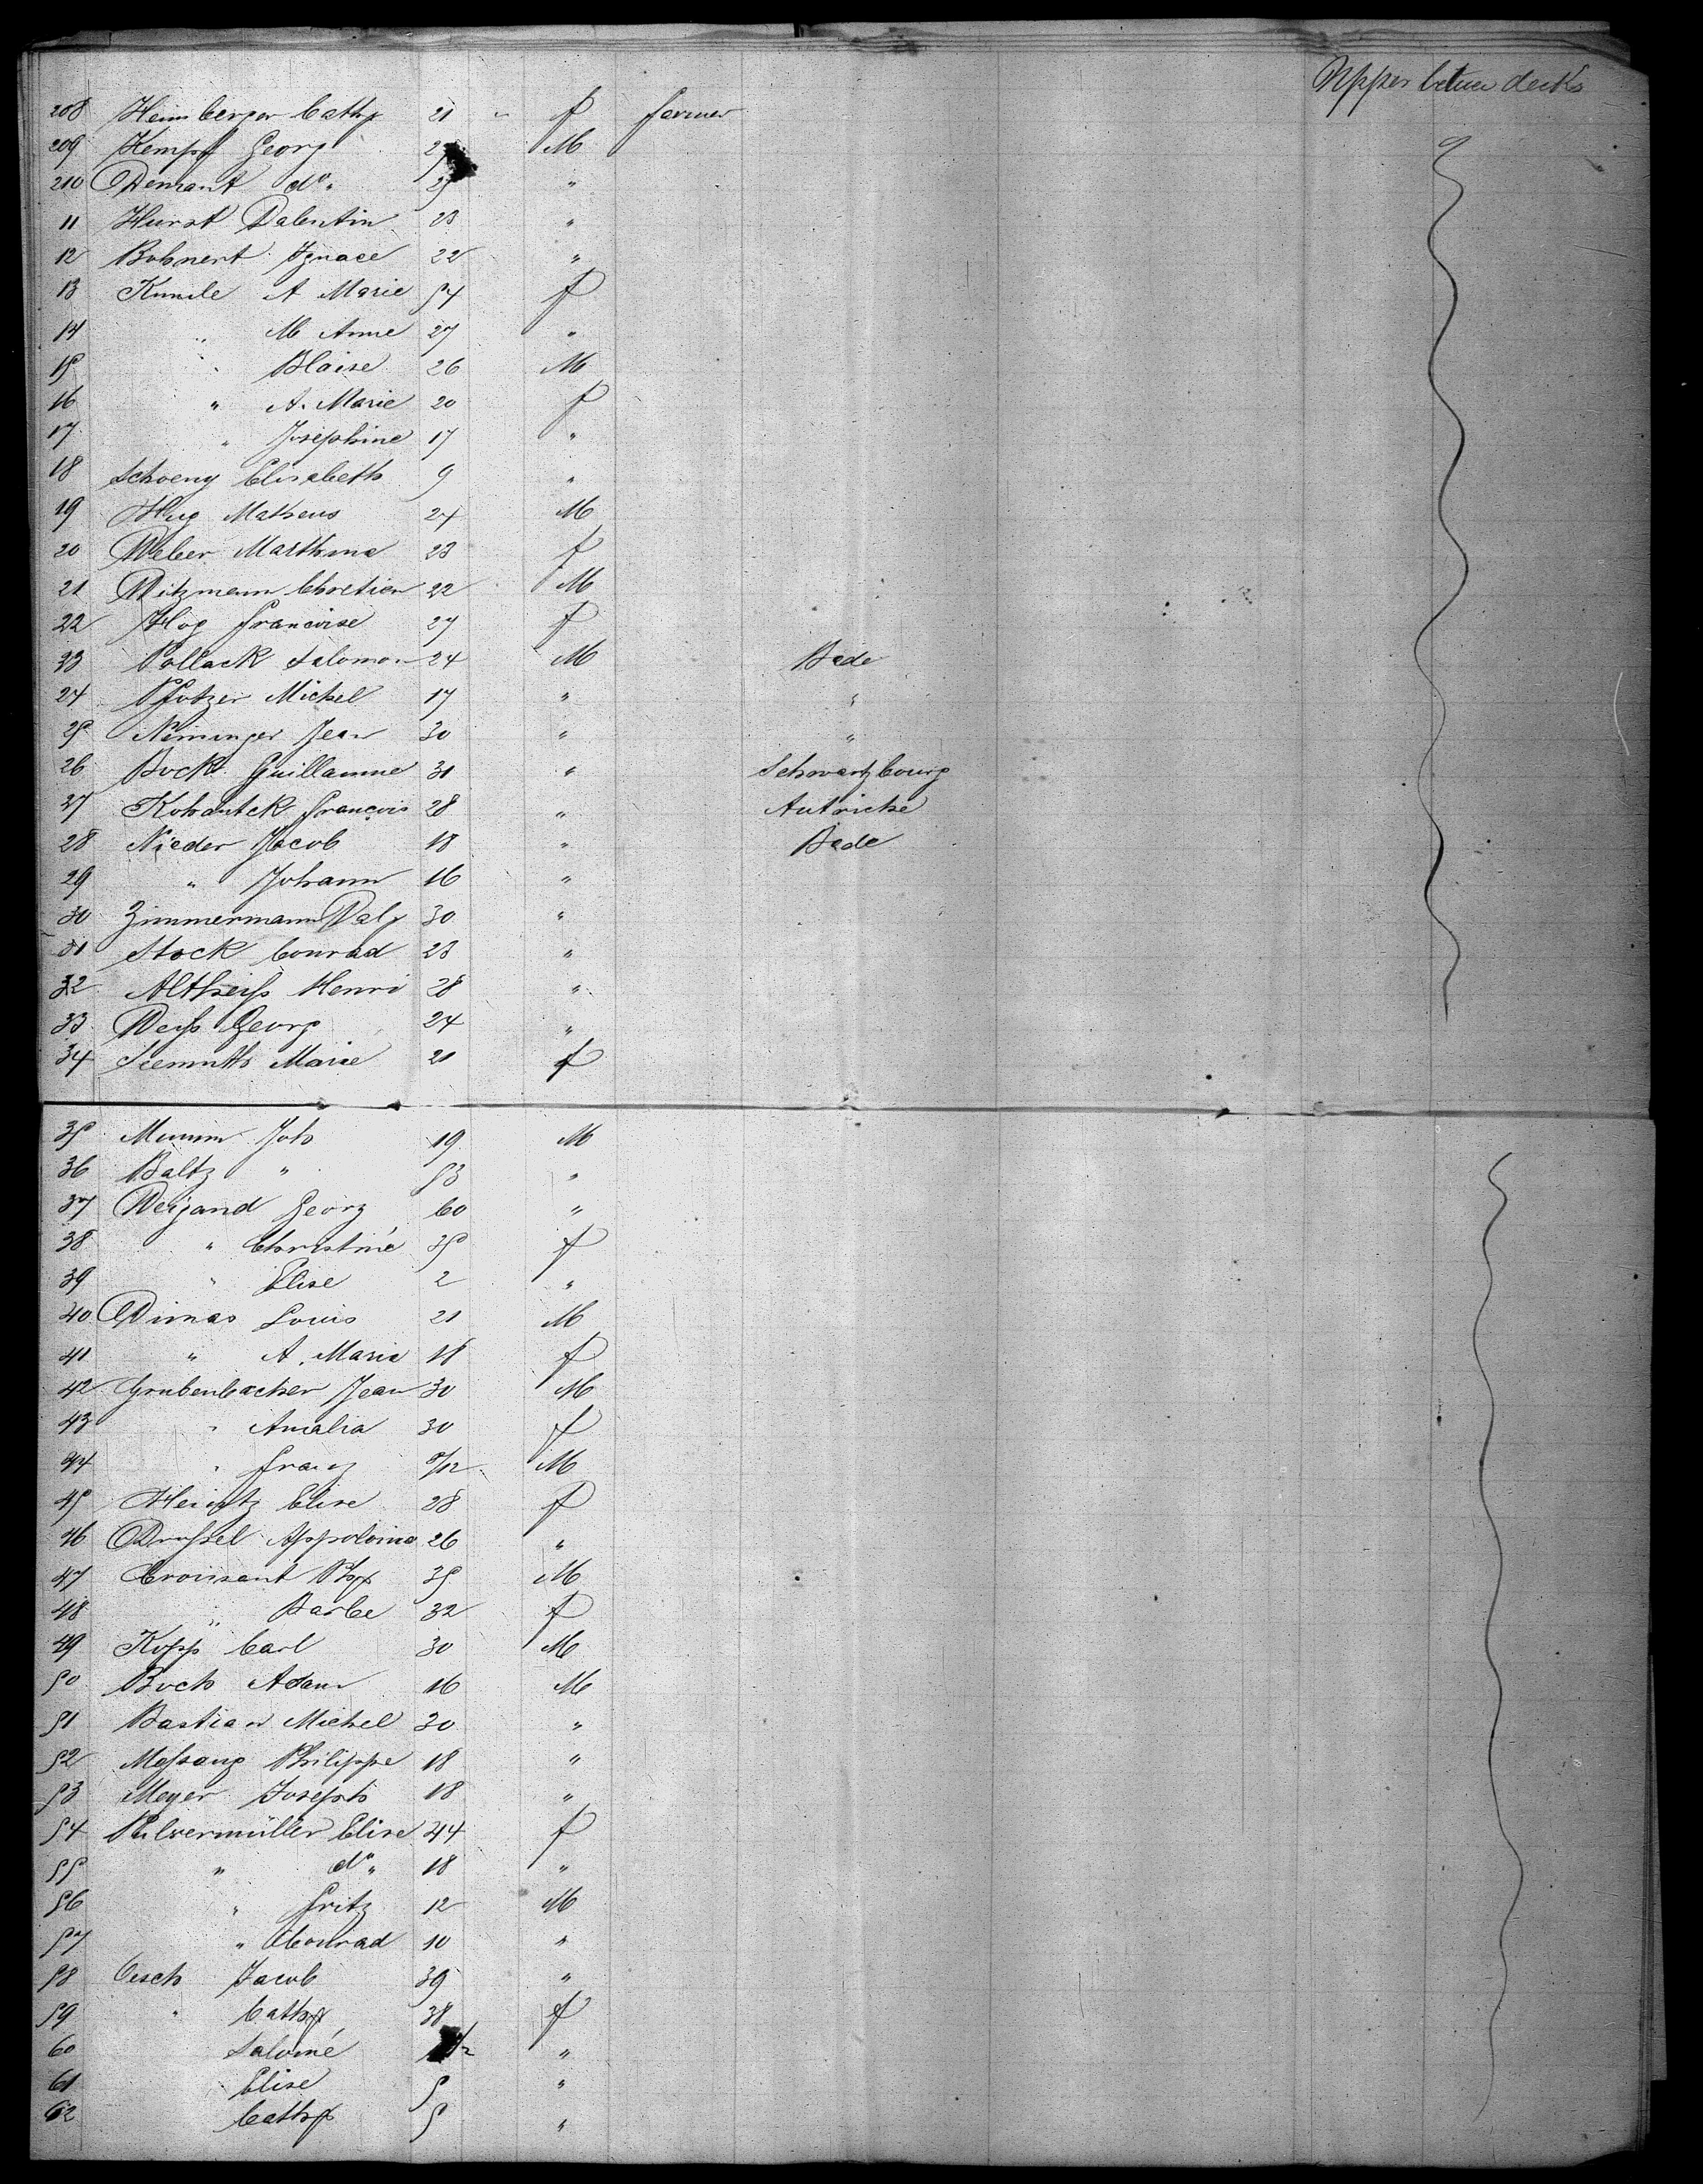 Upper betwe decks
208 Heimberger Cath 21 f farmer
209 Kempf Georg M
210 Demant do "
11 Hurst Valentin 23 "
12 Bohnert Ignace 22 "
13 Kunde A Marie 54 f
14 " M Anne 27 "
15 " Blaise 26 M
16 " A. Marie 20 f
17 " Josephine 17 "
18 Schoeny Elisabeth 9 "
19 Hug Matheus 24 M
20 Weber 23 f
21 Witzmann Chretien 22 M
22 Hog Francoise 27 f
23 Pollack Salomon 24 M Bade
24 Pfotzer Michel 17 " "
25 Niminger Jean 30 " "
26 Bock Guillaume 31 " Schwartzbourg
27 François 28 " Autriche
28 Nieder Jacob 18 " Bade
29 " Johann 16 "
30 Zimmermann 30 "
31 Stock Conrad 23 "
32 Altheiß Henri 28 "
33 Weiß Georg 24 "
34 Seemuth Marie 21 f
35 Mumm Joh 19 M
36 Baltz " 53 "
37 Weigand Georg 60 "
38 " Christine 35 f
39 " Elise 2 "
40 Dimas Louis 21 M
41 " A. Marie 18 f
42 Grubenbacher Jean 30 M
43 " Amalia 30 f
44 " Franz /12 M
45 Heintz Elise 28 f
46 26 "
47 Croissant 35 M
48 " Barbe 32 f
49 Kopp Carl 30 M
50 Boch Adam 16 M
51 Bastian Michel 30 "
52 Moßang Philippe 18 "
53 Meyer Joseph 18 "
54 Pulvermüller Elise 44 f
55 " do " 18 "
56 " Fritz 12 M
57 " Conrad 10 "
58 Oesch Jacob 39 "
59 " Cath 38 f
60 Salomé "
61 Elise 5 "
62 Cath 5 "